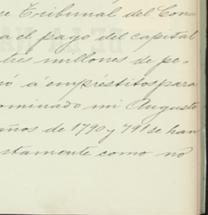 se Tribunal del Con
a el pago del capital
tres millones de pe-
nó á empréstitos para
ominado mi Augusto
años de 1790 y 791 se han
stamente como no